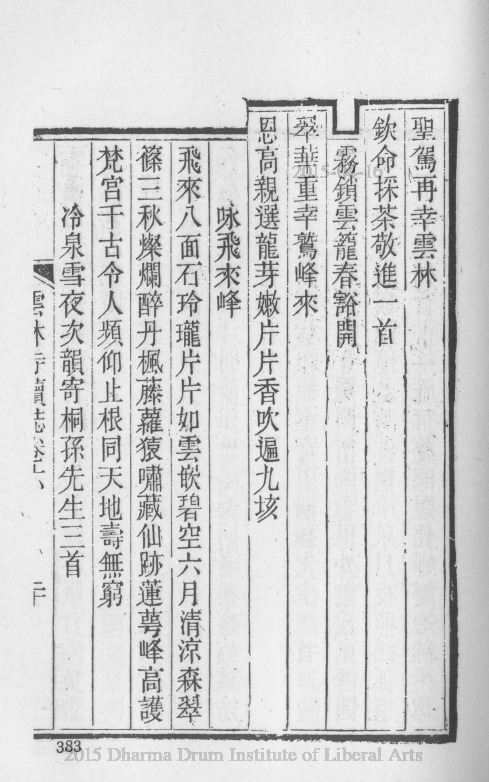 聖駕再幸雲林
欽命採茶敬進一首
霧鎖雲籠春豁開
翠華重幸鷲峰來
恩高親選龍芽嫩片片香吹遍九垓
咏飛來峰
飛來八面石玲瓏片片如雲嵌碧空六月清涼森翠
篠三秋燦爛醉丹楓藤蘿猿嘯藏仙跡蓮萼峰高護
梵宮千古令人頻仰止根同天地壽無窮
冷泉雪夜次韻寄桐孫先生三首
雲林寺續誌卷六 二十
383
2015 Dharma Drum Institute of Liberal Arts